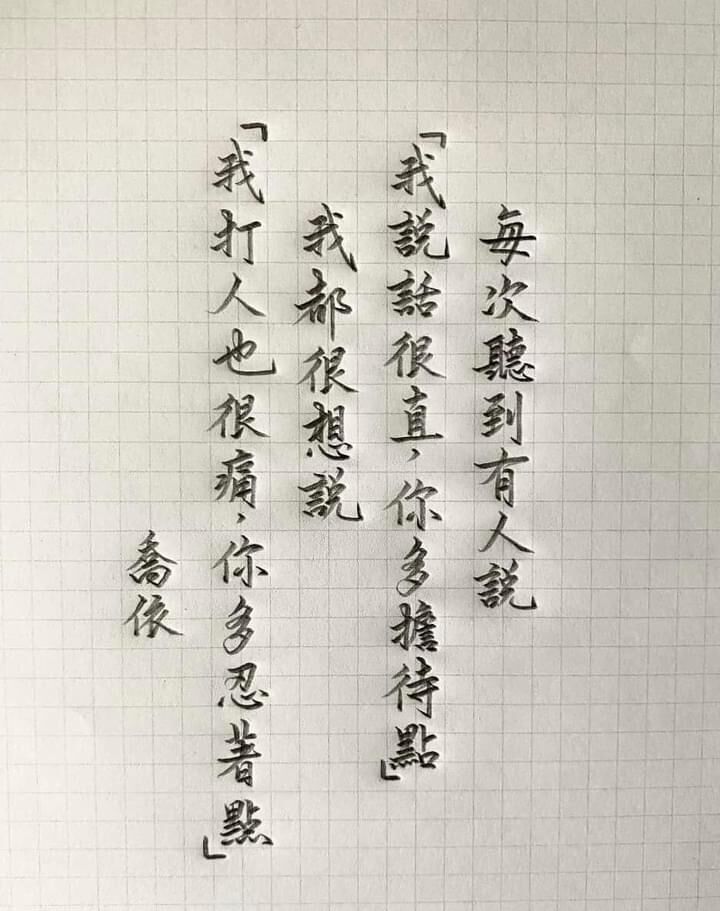 每次聽到有人説
「我説話很直，你多擔待點」
我都很想説
「我打人也很痛，你多忍著點」
喬依